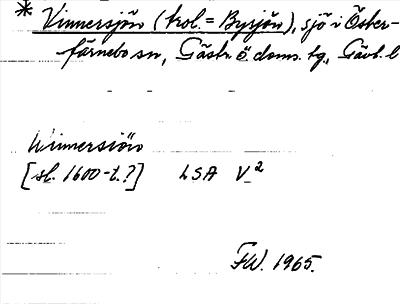 * Vinnersjön (trol. = Bysjön), sjö i Öster-
färnebo sn, Gästr. ö. doms. tg., Gävl. l
Winnersiön
[sl. 1600-t.?] LSA V²
FW. 1965.